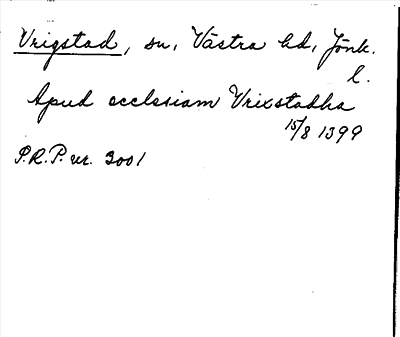 Vrigstad, sn, Västra hd, Jönk.
l.
Apud ecclesiam Vrixstadha
15/8 1399
P.R.P. nr. 3001